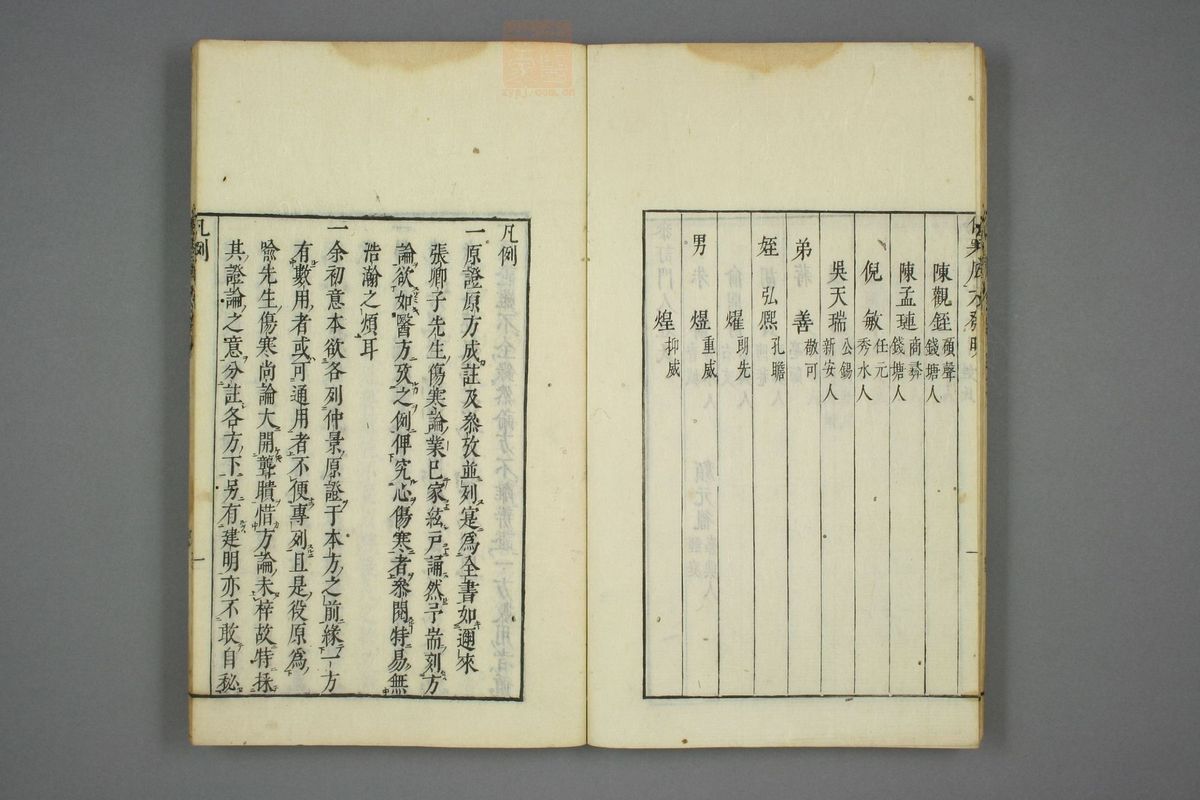 陳觀銍 碩聲 錢塘人
陳孟璉 商彝 錢塘人
倪敏 任元 秀水人
吳天瑞 公錫 新安人
弟蔣善 敬可
姪弘熈 孔瞻
燿 朗先
男朱煜 重威
煌 抑威
凡例
一原證原方成註及叅攷並列寔爲全書如邇來
張卿子先生傷寒論業已家絃戸誦然予耑刻方
論欲如醫方攷之例俾究心傷寒者叅閱特易無
浩瀚之煩耳
一余初意本欲各列仲景原證于本方之前緣一方
有數用者或可通用者不便專列且是役原爲
喻先生傷寒尚論大開聾聵惜方論未梓故特採
其證論之意分註各方下另有建明亦不敢自秘
凡例
一
zysj.com.cn